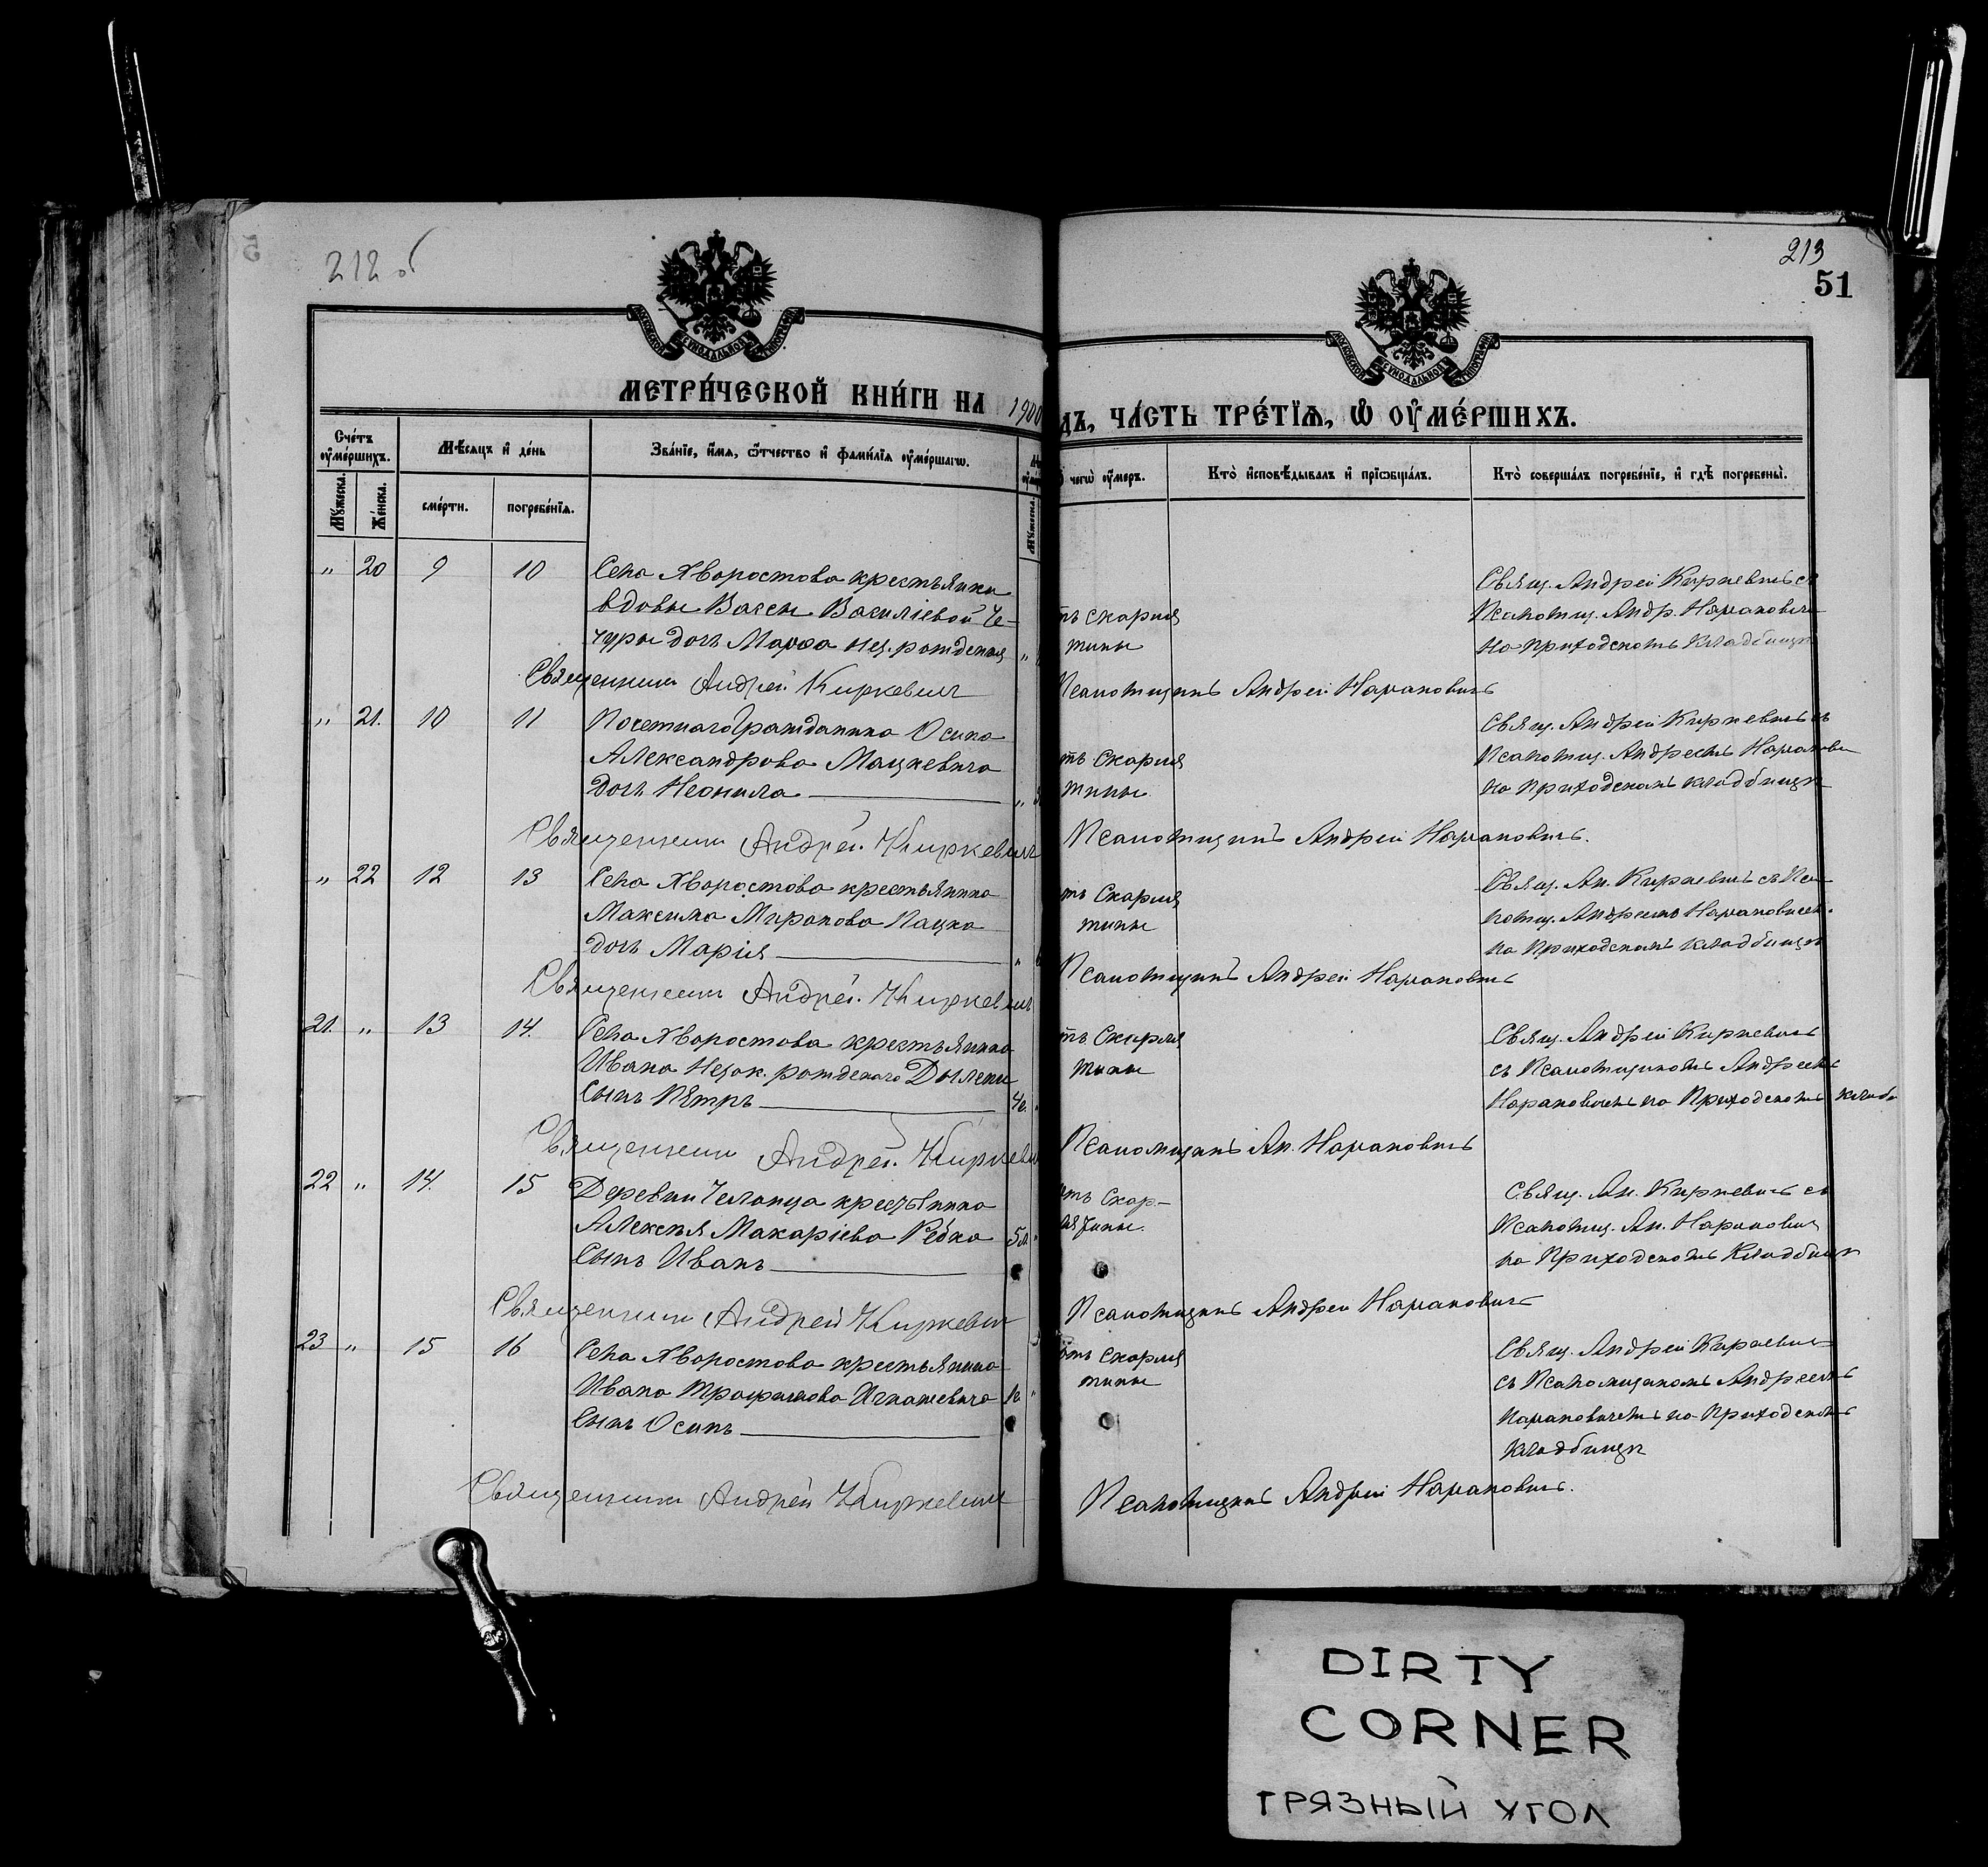 212 об
213
51
МЕТРИ́ЧЕСКОЙ КНИ́ГИ НА 1900
ДЪ, ЧА́СТЬ ТРЕ́ТЇѦ, Ѡ҆ ОУ҆МЕ́РШИХЪ.
Сче́тъ оу҆ме́ршихъ.
Мꙋ́жеска.
Же́нска.
Мѣ́сѧцъ и҆ де́нь
сме́рти.
погребе́нїѧ.
Зва́нїе, и҆́мѧ, ѻ҆́тчество и҆ фами́лїѧ оу҆ме́ршагѡ.
Мꙋ́жеска.
чегѡ̀ оу҆́меръ.
Кто̀ и҆сповѣ́дывалъ и҆ прїѡбща́лъ.
Кто̀ соверша́лъ погребе́нїе, и҆ гдѣ̀ погребены̀.
„ 20 9 10 Села Хворостова крестьянки
вдовы Васы Василіевой Че-
чуры дочь Марѳа нез. рожденная „
тъ скарля
тины
Свящ. Андрей Киркевичъ съ
Псаломщ. Андр. Нарановиче
на приходскомъ кладбищѣ
Священникъ Андрей Киркевич
Псаломщикъ Андрей Нарановичъ
„ 21. 10 11 Почетнаго Гражданина Осипа
Александрова Мацкевича
дочь Неонила „
тъ Скарля
тины
Свящ. Андрей Киркевичъ съ
Псаломщ. Андреемъ Наранови
на приходскомъ кладбищѣ
Священник Андрей Киркевич
Псаломщикъ Андрей Нарановичъ.
„ 22 12 13 Села Хворостова крестьянина
Максима Миронова Пацка
дочь Марія „
тъ Скарля
тины
Свящ. Ан. Киркевичъ съ Пса
ломщ. Андреемъ Нарановичем.
на Приходскомъ кладбищѣ
Священник Андрей Киркевич
Псаломщикъ Андрей Нарановичъ
21. „ 13 14. Села Хворостова крестьянина
Ивана Незак. рожденаго
Сынъ Пётръ 4г.
тъ Скарля
тины
Свящ. Андрей Киркевичъ
съ Псаломщикомъ Андреемъ
Нарановичемъ на Приходскомъ кладб
Священник Андрей Киркеви
Псаломщикъ Ан. Нарановичъ
22 „ 14. 15 Деревни крестьянина
Алексѣя Макаріева Рѣбка 5м
Сынъ Иванъ
отъ Скар-
лятины.
Свящ. Ан. Киркевичъ съ
Псаломщ. Ан. Наранович
на Приходскомъ Кладбищѣ
Священник Андрей Киркевич
Псаломщикъ Андрей Нарановичъ
23 „ 15 16 Села Хворостова крестьянина
Ивана Трофимова Игнашевича 1г.
Сынъ Осипъ
отъ Скарля
тины
Свящ. Андрей Киркевичъ
съ Псаломщикомъ Андреемъ
Нарановичемъ на Приходскомъ
Кладбищѣ
Священник Андрей Киркевич
Псаломщикъ Андрей Нарановичъ.
DIRTY
CORNER
ГРЯЗНЫЙ УГОЛ